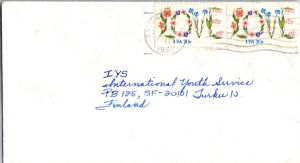 LOVE LOVE
USA 20c USA 20c
IYS
International Youth Service
PB 125, SF-20101 Turku 10.
Finland